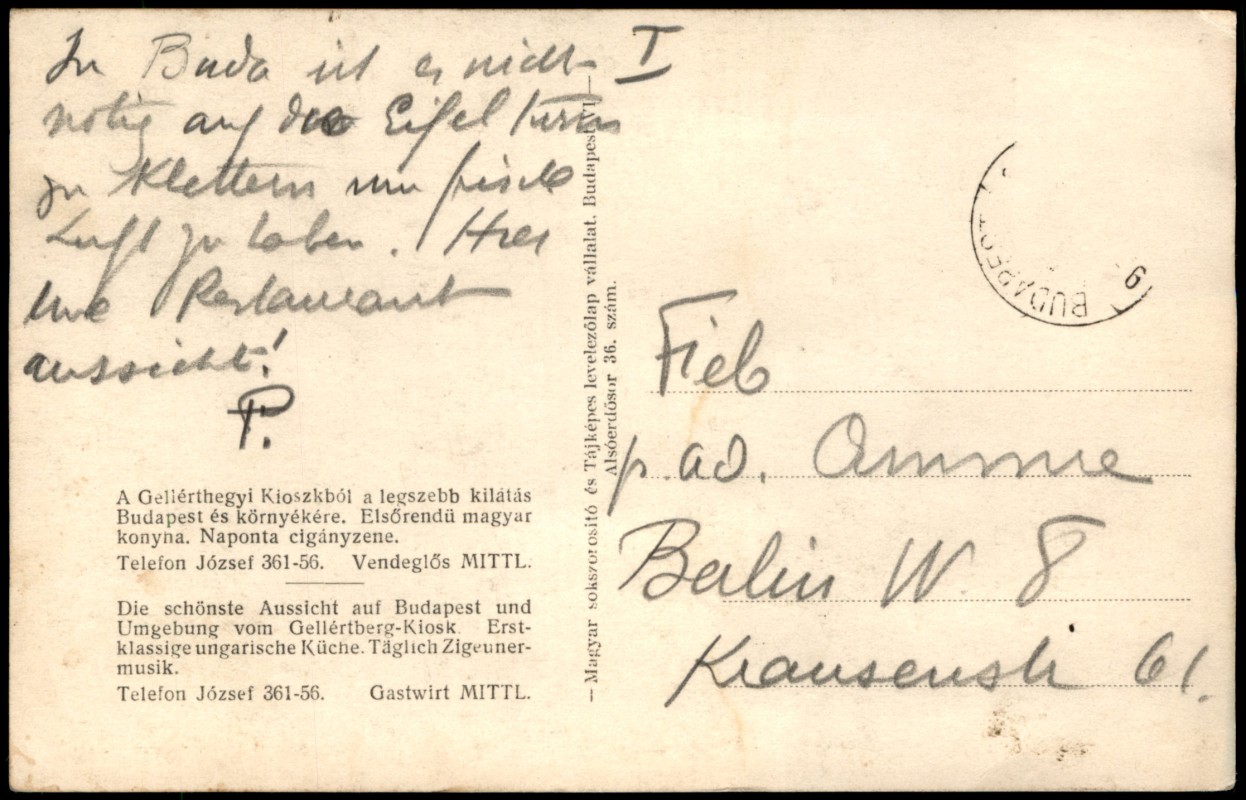 In Buda ist es nicht
nötig auf die Eifel turm
zu Klettern um frische
Luft zu haben. Hier
une Restaurant
aussicht!
P.
I
A Gellérthegyi Kioszkból a legszebb kilátás
Budapest és környékére. Elsőrendü magyar
konyha. Naponta cigányzene.
Telefon József 361-56. Vendeglős MITTL.
Die schönste Aussicht auf Budapest und
Umgebung vom Gellértberg-Kiosk. Erst-
klassige ungarische Küche. Täglich Zigeuner-
musik.
Telefon József 361-56. Gastwirt MITTL.
—Magyar sokszorositó és Tájképes levelezőlap vállalat. Budapest, VI—
Alsóerdősor 36. szám.
BUDAPEST
6
Fieb
p. ad. Ammre
Berlin W. 8
Krausenstr 61.